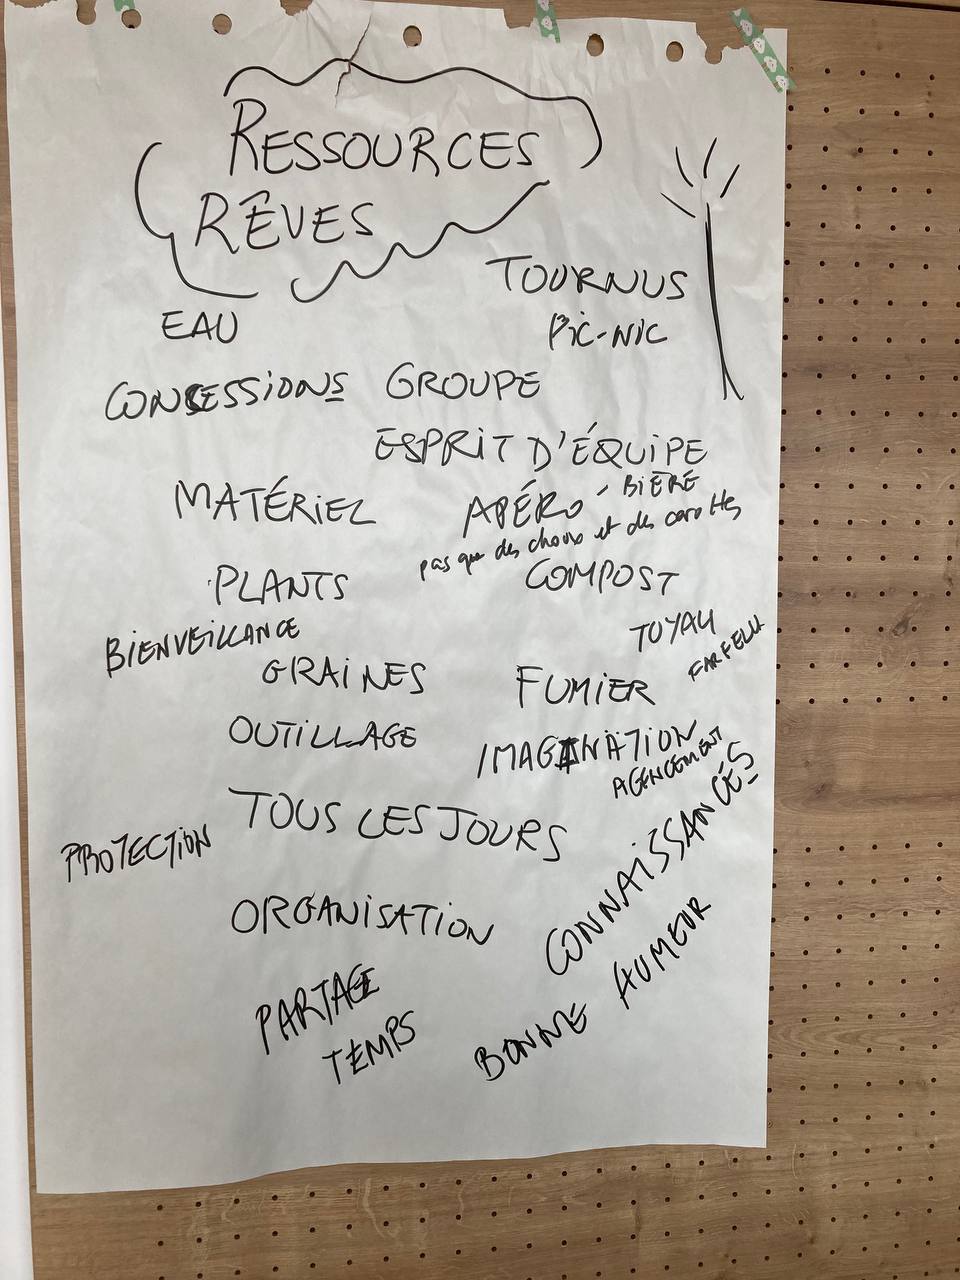 RESSOURCES
RÊVES
TOURNUS
EAU
PIC-NIC
CONCESSIONS
GROUPE
ESPRIT D'ÉQUIPE
MATÉRIEL
APÉRO - BIÈRE
pas que des choux et des carottes
PLANTS
COMPOST
BIENVEILLANCE
TUYAU
FARFELU
GRAINES
FUMIER
OUTILLAGE
IMAGINATION
AGENCEMENT
TOUS LES JOURS
PROTECTION
CONNAISSANCES
ORGANISATION
BONNE HUMEUR
PARTAGE
TEMPS